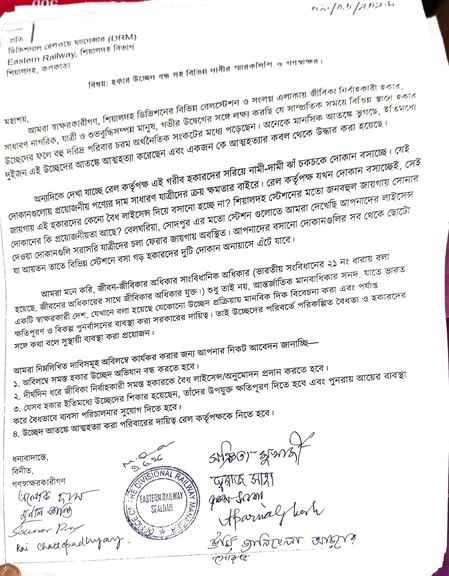 প্রতি
ডিভিশনাল রেলওয়ে ম্যানেজার (DRM)
Eastern Railway, শিয়ালদহ বিভাগ
শিয়ালদহ, কলকাতা
বিষয়: হকার উচ্ছেদ বন্ধ সহ বিভিন্ন দাবীর স্মারকলিপি ও গণস্বাক্ষর।
মহাশয়,
আমরা স্বাক্ষরকারীগণ, শিয়ালদহ ডিভিশনের বিভিন্ন রেলস্টেশন ও সংলগ্ন এলাকায় জীবিকা নির্বাহকারী হকার,
সাধারণ নাগরিক, যাত্রী ও শুভবুদ্ধিসম্পন্ন মানুষ, গভীর উদ্বেগের সঙ্গে লক্ষ্য করছি যে সাম্প্রতিক সময়ে বিভিন্ন স্থানে হকার
উচ্ছেদের ফলে বহু দরিদ্র পরিবার চরম অর্থনৈতিক সংকটের মধ্যে পড়েছেন। অনেকে মানসিক আতঙ্কে ভুগছে, ইতিমধ্যে
দুইজন এই উচ্ছেদের আতঙ্কে আত্মহত্যা করেছেন এবং একজন কে আত্মহত্যার কবল থেকে উদ্ধার করা হয়েছে।
অন্যদিকে দেখা যাচ্ছে রেল কর্তৃপক্ষ এই গরীব হকারদের সরিয়ে নামী-দামী ঝাঁ চকচকে দোকান বসাচ্ছে। যেই
দোকানগুলোয় প্রয়োজনীয় পণ্যের দাম সাধারণ যাত্রীদের ক্রয় ক্ষমতার বাইরে। রেল কর্তৃপক্ষ যখন দোকান বসাচ্ছেই, সেই
জায়গায় এই হকারদের কেনো বৈধ লাইসেন্স দিয়ে বসানো হচ্ছে না? শিয়ালদহ স্টেশনের মতো জনবহুল জায়গায় সোনার
দোকানের কি প্রয়োজনীয়তা আছে? বেলঘরিয়া, সোদপুর এর মতো স্টেশন গুলোতে আমরা দেখেছি আপনাদের লাইসেন্স
দেওয়া দোকানগুলি সরাসরি যাত্রীদের চলা ফেরার জায়গায় অবস্থিত। আপনাদের বসানো দোকানগুলির সব থেকে ছোটো
যা আয়তন তাতে বিভিন্ন স্টেশনে বসা গড় হকারদের দুটি দোকান অনায়াসে এঁটে যাবে।
আমরা মনে করি, জীবন-জীবিকার অধিকার সাংবিধানিক অধিকার (ভারতীয় সংবিধানের ২১ নং ধারায় বলা
হয়েছে, জীবনের অধিকারের সাথে জীবিকার অধিকার যুক্ত।) শুধু তাই নয়, আন্তর্জাতিক মানবাধিকার সনদ, যাতে ভারত
একটি স্বাক্ষরকারী দেশ, যেখানে বলা হয়েছে যেকোনো উচ্ছেদ প্রক্রিয়ায় মানবিক দিক বিবেচনা করা এবং পর্যাপ্ত
ক্ষতিপূরণ ও বিকল্প পুনর্বাসনের ব্যবস্থা করা সরকারের দায়িত্ব। তাই উচ্ছেদের পরিবর্তে পরিকল্পিত বৈধতা ও হকারদের
সঙ্গে কথা বলে সুস্থায়ী ব্যবস্থা করা প্রয়োজন।
আমরা নিম্নলিখিত দাবিসমূহ অবিলম্বে কার্যকর করার জন্য আপনার নিকট আবেদন জানাচ্ছি—
১. অবিলম্বে সমস্ত হকার উচ্ছেদ অভিযান বন্ধ করতে হবে।
২. দীর্ঘদিন ধরে জীবিকা নির্বাহকারী সমস্ত হকারকে বৈধ লাইসেন্স/অনুমোদন প্রদান করতে হবে।
৩. যেসব হকার ইতিমধ্যে উচ্ছেদের শিকার হয়েছেন, তাঁদের উপযুক্ত ক্ষতিপূরণ দিতে হবে এবং পুনরায় আয়ের ব্যবস্থা
করে বৈধভাবে ব্যবসা পরিচালনার সুযোগ দিতে হবে।
৪. উচ্ছেদ আতঙ্কে আত্মহত্যা করা পরিবারের দায়িত্ব রেল কর্তৃপক্ষকে নিতে হবে।
ধন্যবাদান্তে,
বিনীত,
গণস্বাক্ষরকারীগণ
OFFICE OF THE DIVISIONAL RAILWAY MANAGER
EASTERN RAILWAY
SEALDAH
Aparna Ghosh
Rai Chattopadhyay